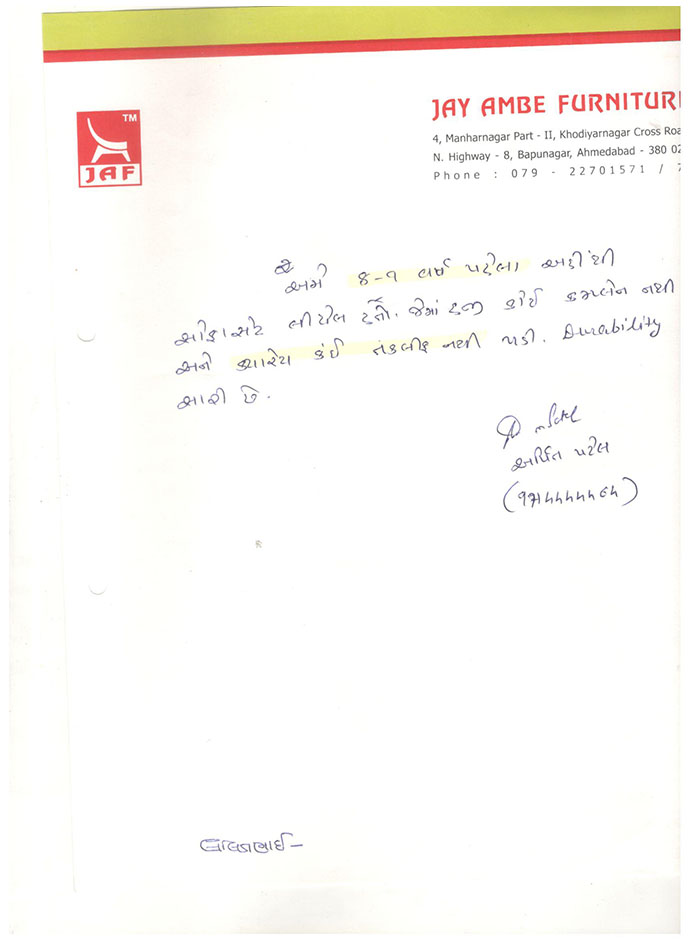 TM
JAF
JAY AMBE FURNITUR
4, Manharnagar Part - II, Khodiyarnagar Cross Roa
N. Highway - 8, Bapunagar, Ahmedabad - 380 02
Phone : 079 - 22701571 / 7
અમે ૪-૧ વર્ષ પહેલા અહીંથી
સોફાસેટ લીધેલ હતો. જેમાં હજી કોઈ કમ્પ્લેન નથી
અને ક્યારેય કંઈ તકલીફ નથી પડી. Durability
સારી છે.
અર્પિત પટેલ